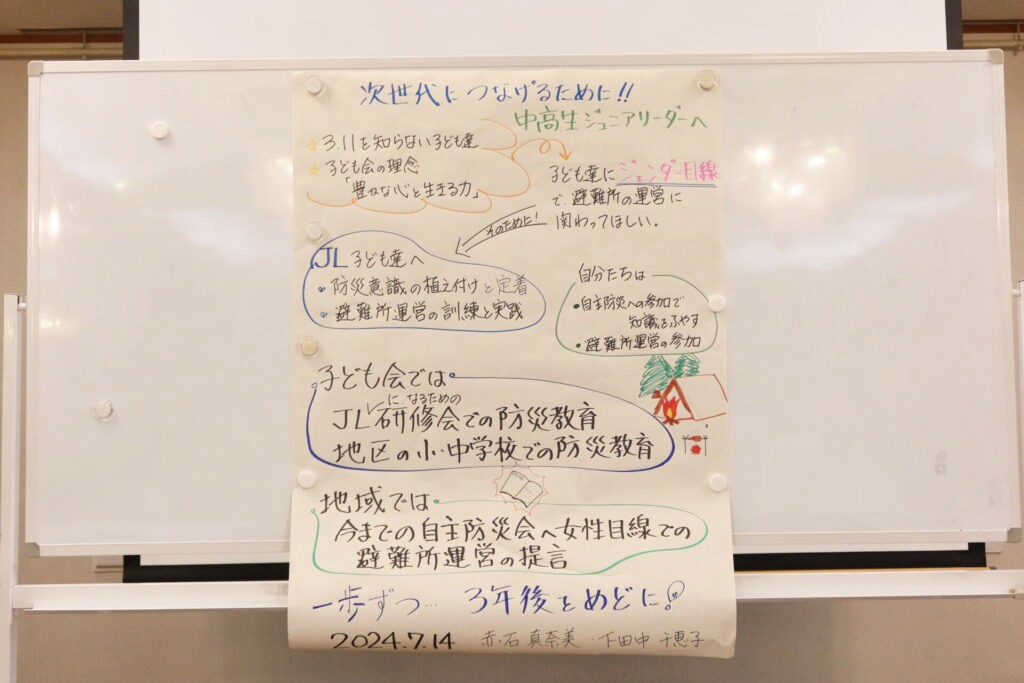 次世代につなげるために!!
中高生ジュニアリーダーへ
☆ 3.11を知らない子ども達
☆ 子ども会の理念
「豊かな心と生きる力」
子ども達にジェンダー目線
で、避難所の運営に
関わってほしい。
そのために!
JL 子ども達へ
・防災意識の植え付けと定着
・避難所運営の訓練と実践
自分たちは
・自主防災への参加で
知識をふやす
・避難所運営の参加
子ども会では
になるための
JL研修会での防災教育
地区の小・中学校での防災教育
地域では
今までの自主防災会へ女性目線での
避難所運営の提言
一歩ずつ… 3年後をめどに!
2024.7.14 赤石真奈美・下田中千恵子